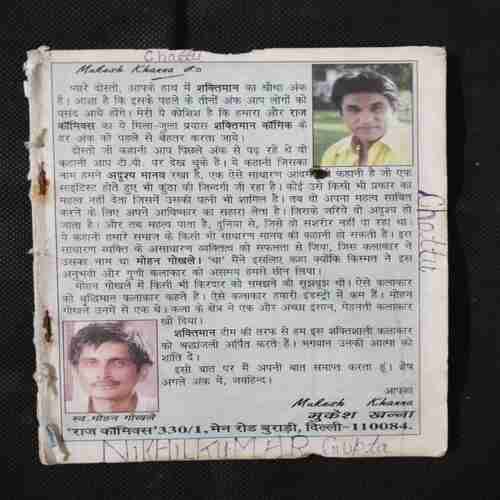 Chattu
Mukesh Khanna
प्यारे दोस्तो, आपके हाथ में शक्तिमान का चौथा अंक
है। आशा है कि इसके पहले के तीनों अंक आप लोगों को
पसंद आये होंगे। मेरी ये कोशिश है कि हमारा और राज
कॉमिक्स का ये मिला-जुला प्रयास शक्तिमान कॉमिक के
हर अंक को पहले से बेहतर करता जाये।
दोस्तो जो कहानी आप पिछले अंक से पढ़ रहे थे वो
कहानी आप टी.वी. पर देख चुके हैं। ये कहानी जिसका
नाम हमने अदृश्य मानव रखा है, एक ऐसे साधारण आदमी की कहानी है जो एक
साइंटिस्ट होते हुए भी कुंठा की जिन्दगी जी रहा है। कोई उसे किसी भी प्रकार का
महत्व नहीं देता जिसमें उसकी पत्नी भी शामिल है। तब वो अपना महत्व साबित
करने के लिए अपने आविष्कार का सहारा लेता है। जिसके जरिये वो अदृश्य हो
जाता है। और तब महत्व पाता है, दुनिया से, जिसे वो सशरीर नहीं पा रहा था।
ये कहानी हमारे समाज के किसी भी साधारण मानव की कहानी हो सकती है। इस
साधारण व्यक्ति के असाधारण व्यक्तित्व को सफलता से जिया, जिस कलाकार ने
उसका नाम था मोहन गोखले। 'था' मैंने इसलिए कहा क्योंकि किस्मत ने इस
अनुभवी और गुणी कलाकार को असमय हमसे छीन लिया।
मोहन गोखले में किसी भी किरदार को समझने की सूझबूझ थी। ऐसे कलाकार
को बुद्धिमान कलाकार कहते हैं। ऐसे कलाकार हमारी इंडस्ट्री में कम हैं। मोहन
गोखले उनमें से एक थे। कला के क्षेत्र ने एक और अच्छा इंसान, मेहनती कलाकार
खो दिया।
शक्तिमान टीम की तरफ से हम इस शक्तिशाली कलाकार
को श्रद्धांजली अर्पित करते हैं। भगवान उनकी आत्मा को
शांति दें।
इसी बात पर मैं अपनी बात समाप्त करता हूं। शेष
अगले अंक में, जयहिन्द।
आपका
Mukesh Khanna
मुकेश खन्ना
स्व.मोहन गोखले
'राज कॉमिक्स' 330/1, मेन रोड बुराड़ी, दिल्ली-110084.
NIKHILKUMAR Gupta
Chattu